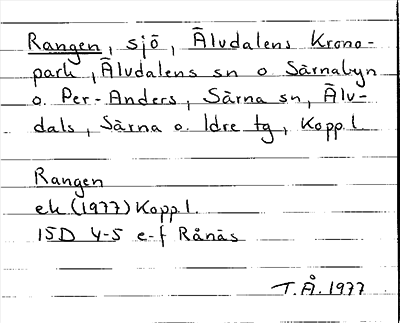 Rangen, sjö, Älvdalens Krono-
park, Älvdalens sn o Särnabyn
o. Per-Anders, Särna sn, Älv-
dals, Särna o. Idre tg, Kopp.l.
Rangen
ek (1977) Kopp.l.
15D 4-5 e-f Rånäs
T.Å. 1977